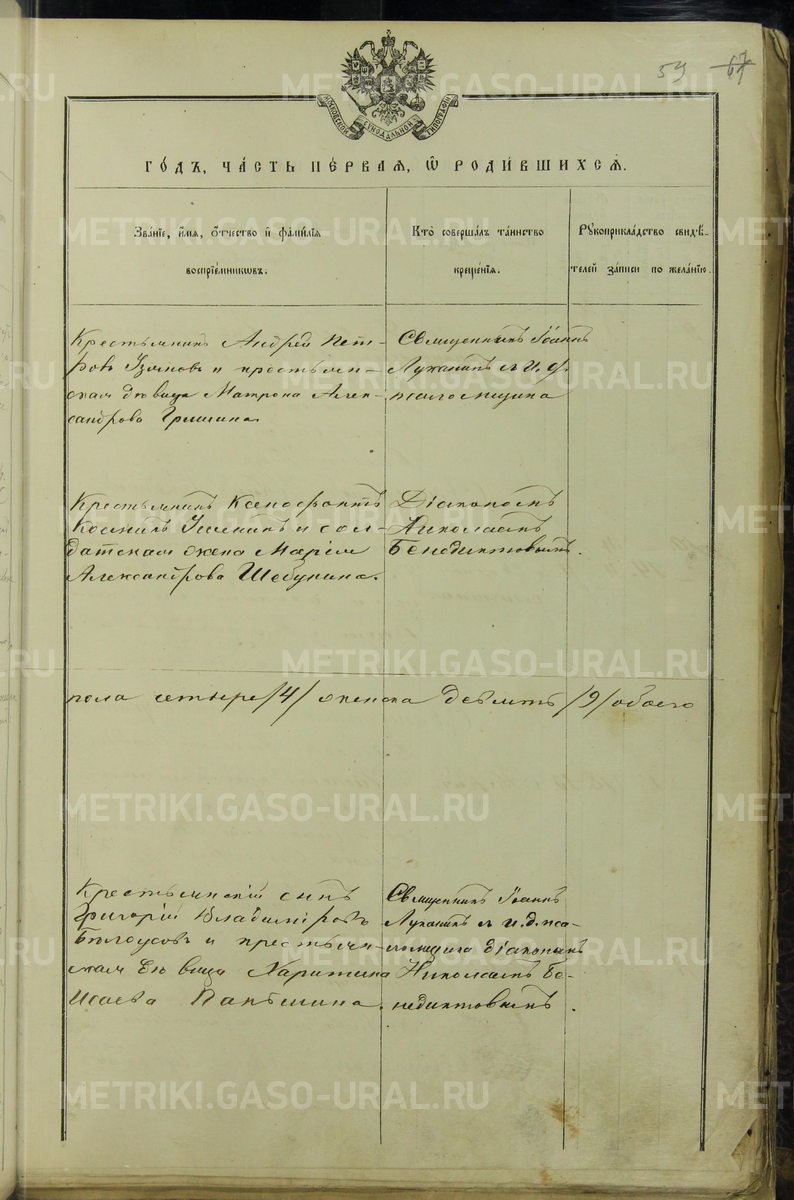 59 67
МОСКОВСКОЙ СѴНОДАЛЬНОЙ ТИПОГРАФІИ
ГОДЪ, ЧАСТЬ ПЕРВАЯ, Ѡ РОДИВШИХСЯ.
Званіе, имя, отчество и фамилія
воспріемниковъ.
Кто совершалъ таинство
крещенія.
Рукоприкладство свидѣ-
телей записи по желанію.
Крестьянинъ Андрей Пет-
ровъ и крестьян-
ская дѣвица Матрона Алек-
сандрова Гришина.
Священникъ Іоаннъ
Луканинъ и и. д.
псаломщика
Крестьянинъ Ксенофонтъ
Козминъ и сол-
датская жена Марія
Александрова Шебунина.
Діакономъ
Николаемъ
Бенедиктовымъ.
пола четыре /4/ женска девять /9/ обоего
Крестьянскій сынъ
Григорій Владиміровъ
Бѣлоусовъ и крестьян-
ская дѣвица Харитина
Исаева Папѣшина.
Священникъ Іоаннъ
Луканинъ и и. д. пса-
ломщика діакономъ
Николаемъ Бе-
недиктовымъ.
METRIKI.GASO-URAL.RU